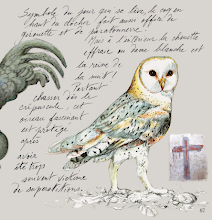 Symbole du jour qui se lève, le coq en
haut du clocher fait aussi office de
girouette et de paratonnerre.
Mais à l'intérieur la chouette
effraie ou dame blanche est
la reine de
la nuit !
Partant
chasser dès le
crépuscule, cet
oiseau fascinant
est protégé
après
avoir
été trop
souvent victime
de superstitions.